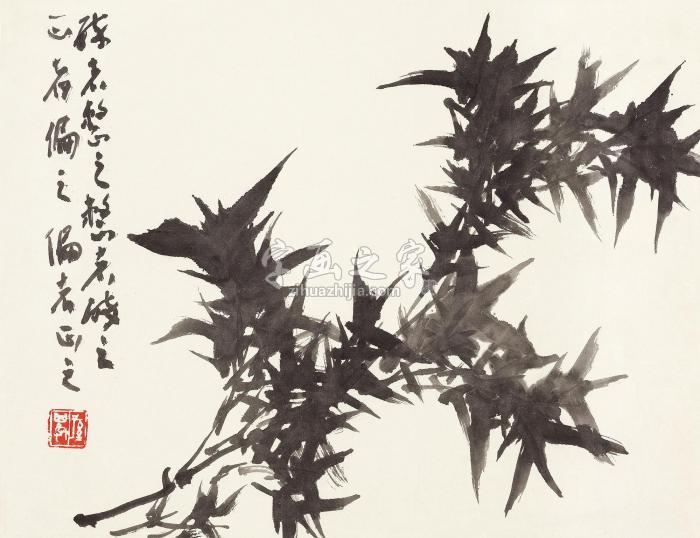 碎者整之整者碎之
正者偏之偏者正之
字画之家
zihuazhijia.com